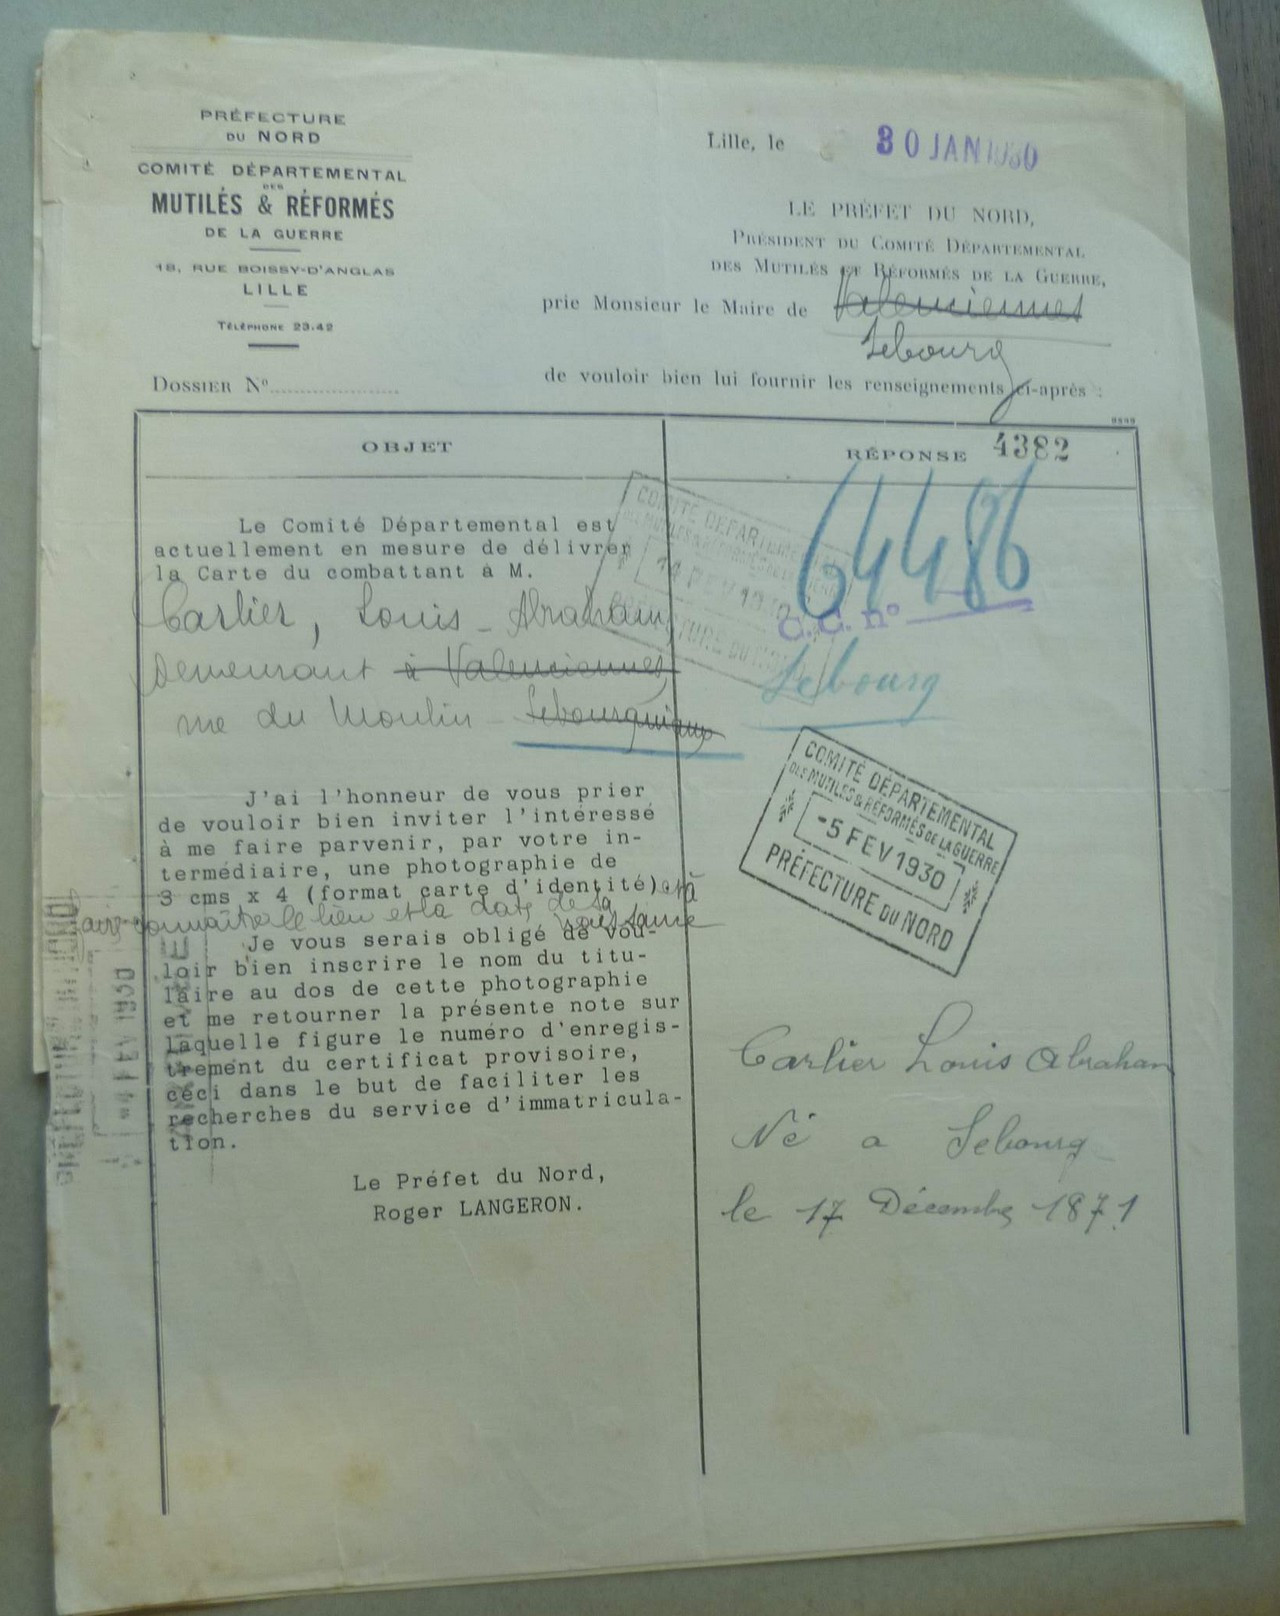 PRÉFECTURE
DU NORD
COMITÉ DÉPARTEMENTAL
DES
MUTILÉS & RÉFORMÉS
DE LA GUERRE
18, RUE BOISSY-D'ANGLAS
LILLE
TÉLÉPHONE 23.42
DOSSIER N°
Lille, le 30 JAN 1930
LE PRÉFET DU NORD,
PRÉSIDENT DU COMITÉ DÉPARTEMENTAL
DES MUTILÉS ET RÉFORMÉS DE LA GUERRE,
prie Monsieur le Maire de Valenciennes
Sebourg
de vouloir bien lui fournir les renseignements ci-après :
OBJET
Le Comité Départemental est
actuellement en mesure de délivrer
la Carte du combattant à M.
Carlier, Louis - Abraham,
Demeurant à Valenciennes,
rue du Moulin - Sebourquiaux
J'ai l'honneur de vous prier
de vouloir bien inviter l'intéressé
à me faire parvenir, par votre in-
termédiaire, une photographie de
3 cms x 4 (format carte d'identité) et à
faire connaître le lieu et la date de sa
naissance
Je vous serais obligé de vou-
loir bien inscrire le nom du titu-
laire au dos de cette photographie
et me retourner la présente note sur
laquelle figure le numéro d'enregis-
trement du certificat provisoire,
ceci dans le but de faciliter les
recherches du service d'immatricula-
tion.
Le Préfet du Nord,
Roger LANGERON.
RÉPONSE 4382
64486
C.C. n°
Sebourg
COMITÉ DÉPARTEMENTAL
DES MUTILÉS & RÉFORMÉS DE LA GUERRE
14 FEV 1930
PRÉFECTURE DU NORD
COMITÉ DÉPARTEMENTAL
DES MUTILÉS & RÉFORMÉS DE LA GUERRE
-5 FEV 1930
PRÉFECTURE DU NORD
Carlier Louis Abraham
Né a Sebourg
le 17 Décembre 1871